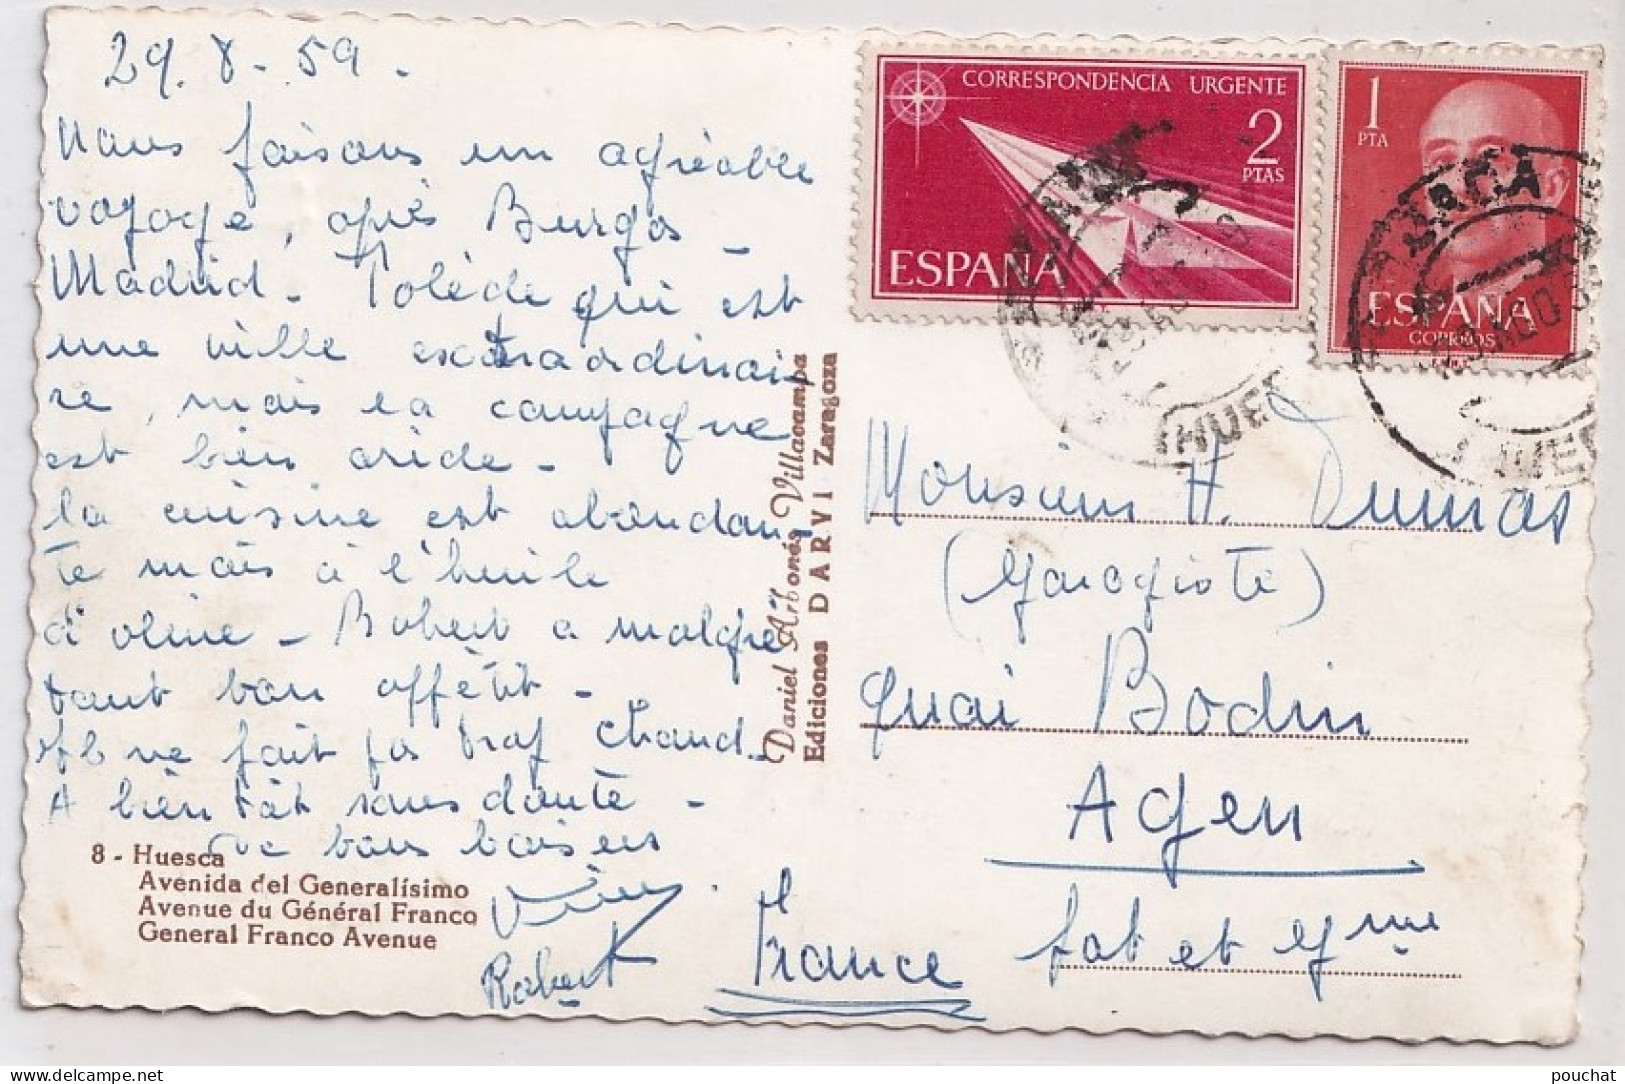 29.8.59.
Nous faisons un agréable
voyage, après Burgos -
Madrid - Tolède qui est
une ville extraordinai-
re, mais la campagne
est bien aride -
la cuisine est abondan-
te mais à l'huile
d'olive - Robert a malgré
tout bon appétit -
Il ne fait pas trop chaud -
A bientôt sans doute -
de bons baisers
Robert
8 - Huesca
Avenida del Generalísimo
Avenue du Général Franco
General Franco Avenue
Daniel Arbonés Villacampa
Ediciones DARVI Zaragoza
CORRESPONDENCIA URGENTE
2
PTAS
ESPAÑA
1
PTA
ESPAÑA
CORREOS
JACA
HUES
Monsieur H. Dumas
(garagiste)
quai Bodin
Agen
Lot et Gne
France
pouchat